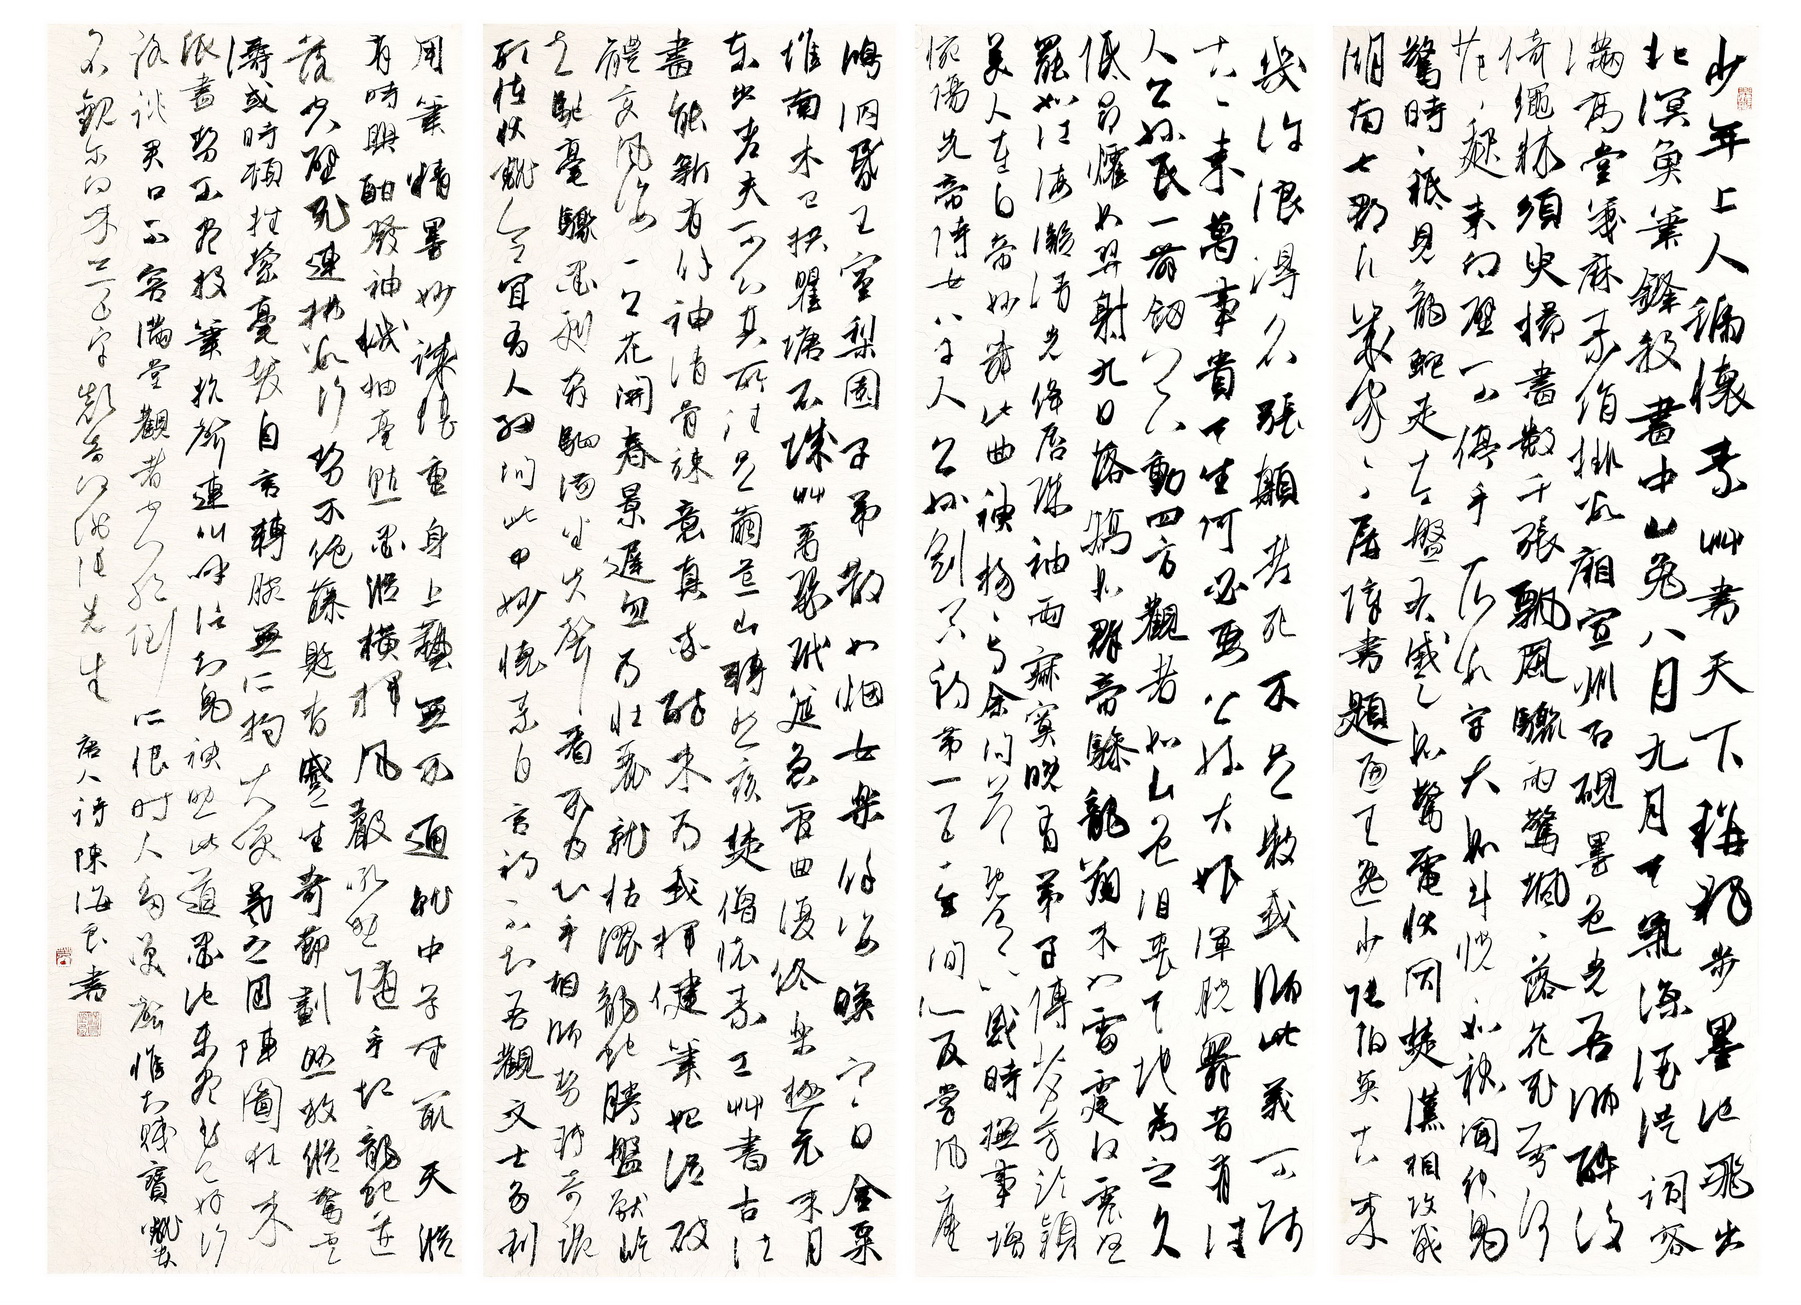 少年上人號懷素草書天下稱獨步墨池飛出
北溟魚筆鋒殺盡中山兔八月九月天氣涼酒徒詞客
滿高堂箋麻素絹排數廂宣州石硯墨色光吾師醉後
倚繩床須臾掃盡數千張飄風驟雨驚颯颯落花飛雪何
茫茫起來向壁不停手一行數字大如斗怳怳如聞神鬼
驚時時祇見龍蛇走左盤右蹙如驚電狀同楚漢相攻戰
湖南七郡凡幾家家家屏障書題遍王逸少張伯英古來
幾許浪得名張顛老死不足數我師此義不師
古古來萬事貴天生何必要公孫大娘渾脫舞昔有佳
人公孫氏一舞劍器動四方觀者如山色沮喪天地為之久
低昂㸌如羿射九日落矯如群帝驂龍翔來如雷霆收震怒
罷如江海凝清光絳唇珠袖兩寂寞晚有弟子傳芬芳臨潁
美人在白帝妙舞此曲神揚揚與余問答既有以感時撫事增
惋傷先帝侍女八千人公孫劍器初第一五十年間似反掌風塵
鴻洞昏王室梨園子弟散如煙女樂餘姿映寒日金粟
堆南木已拱瞿塘石城草蕭瑟玳筵急管曲復終樂極哀來月
東出老夫不知其所往足繭荒山轉愁疾楚僧懷素工草書古法
盡能新有餘神清骨竦意真率醉來為我揮健筆始從破
體變風姿一一花開春景遲忽為壯麗就枯澀龍蛇騰盤獸屹
立馳毫驟墨劇奔駟滿坐失聲看不及心手相師勢轉奇詭
形怪狀翻合宜有人細問此中妙懷素自言初不知吾觀文士多利
用筆精墨妙誠堪重身上藝無不通就中草聖最天縱
有時興酣發神機抽毫點墨縱橫揮風聲吼烈隨手起龍蛇迸
落空壁飛連拂數行勢不絕藤懸查蹙生奇節劃然放縱驚雲
濤或時頓挫縈毫髮自言轉腕無所拘大笑羲之用陣圖狂來
紙盡勢不盡投筆抗聲連叫呼信知鬼神助此道墨池未盡書已好行
路談君口不容滿堂觀者空絕倒所恨時人多笑聲唯知賤實翻貴
名觀爾向來三五字顛奇何謝張先生
唐人詩陳海良書